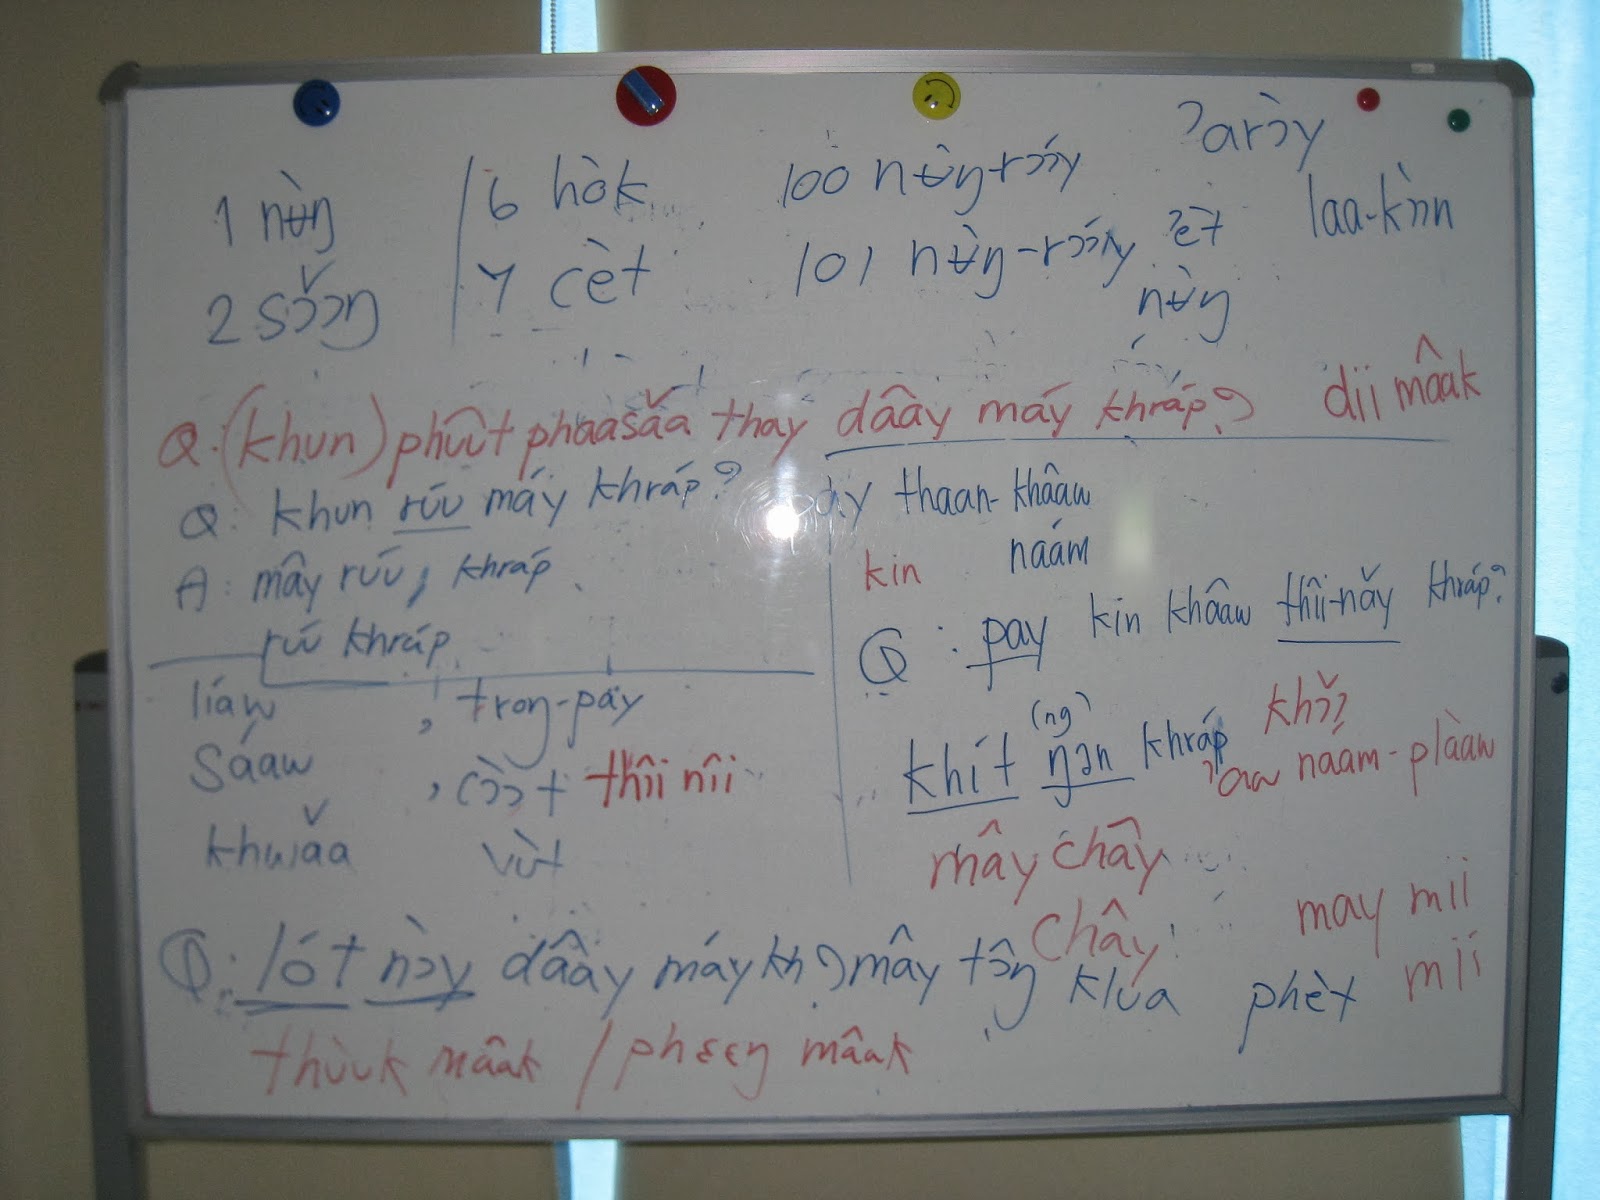 1 nʉ̀ŋ
2 sɔ̌ɔŋ
6 hòk
7 cèt
100 nʉ̀ŋ-rɔ́ɔy
101 nʉ̀ŋ-rɔ́ɔy ʔèt
nʉ̀ŋ
ʔarɔ̀y
laa-kɔ̀ɔn
Q. (khun) phûut phaasǎa thay dâay máy khráp?
dii mâak
Q: khun rúu máy khráp?
A: mây rúu, khráp
rúu khráp
thaan-khâaw
kin náám
Q: pay kin khâaw thîi-nǎy khráp?
(ng)
khít ŋən khráp
khɔ̌ɔ
ʔaw náám-plàaw
mây châỳ
châỳ
líaw , troŋ-pay
sáaw , cɔ̀ɔt thîi nîi
khwǎa
Q: lót nɔ̀y dâay máy kh
mây tɔ̂ŋ klua phèt
may mii
mií
thùuk mâak / phɛɛŋ mâak